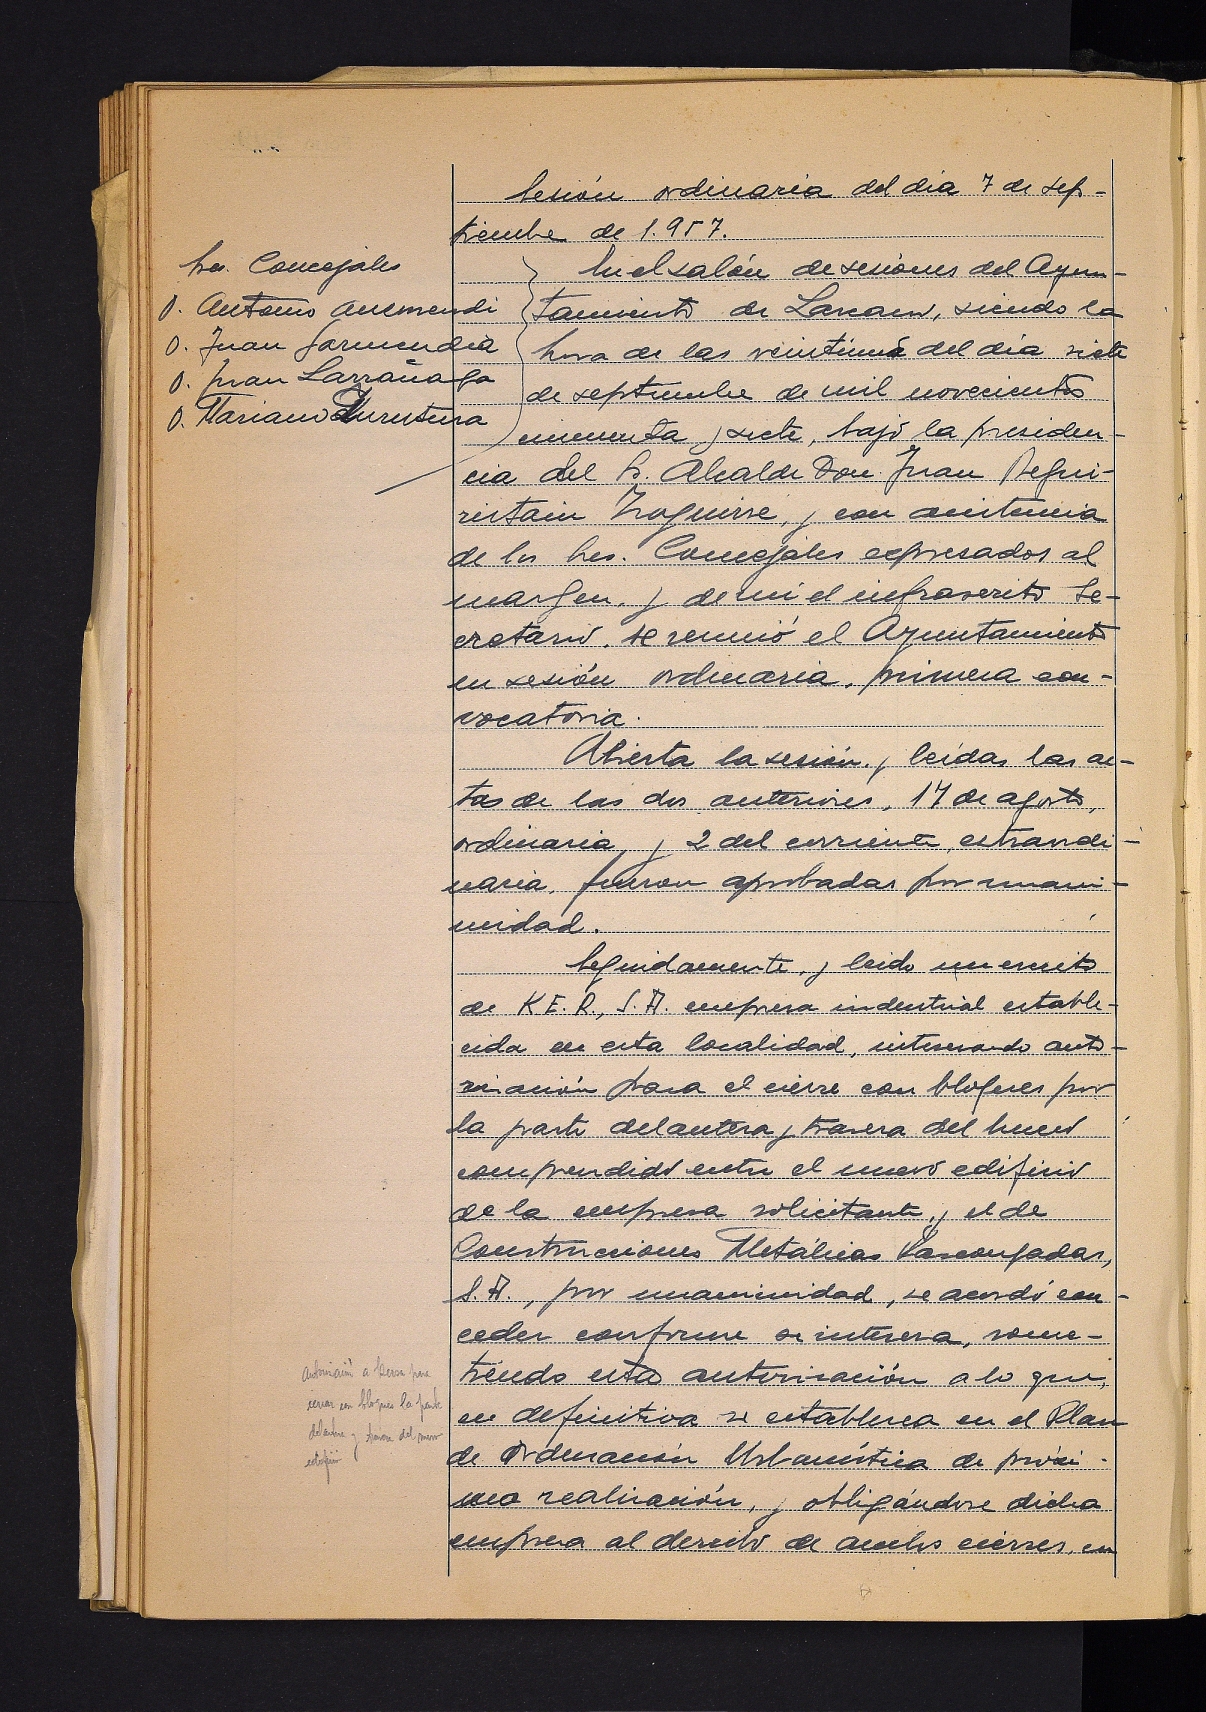 Sesión ordinaria del día 7 de sep-
tiembre de 1.957.
Sres. Concejales
D. Antonio Auzmendi
D. Juan Garmendia
D. Juan Larrañaga
D. Mariano
En el salón de sesiones del Ayun-
tamiento de Lazcano, siendo la
hora de las veintiuna del día siete
de septiembre de mil novecientos
cincuenta y siete, bajo la presiden-
cia del Sr. Alcalde Don Juan Regui-
ristain Izaguirre, y con asistencia
de los Sres. Concejales expresados al
margen, y de mí el infrascrito Se-
cretario, se reunió el Ayuntamiento
en sesión ordinaria, primera con-
vocatoria.
Abierta la sesión, y leídas las ac-
tas de las dos anteriores, 17 de agosto,
ordinaria, y 2 del corriente, extraordi-
naria, fueron aprobadas por unani-
midad.
Seguidamente, y leido un escrito
de K.E.R., S.A. empresa industrial estable-
cida en esta localidad, interesando auto-
rización para el cierre con bloques por
la parte delantera y trasera del hueco
comprendido entre el nuevo edificio
de la empresa solicitante, y el de
Construcciones Metálicas Vascongadas,
S.A., por unanimidad, se acordó con-
ceder conforme se interesa, some-
tiendo esta autorización a lo que,
en definitiva se establezca en el Plan
de Ordenación Urbanística de próxi-
ma realización, y obligándose dicha
empresa al derribo de ambos cierres, en
Autorización a Kersa para
cerrar con bloques la parte
delantera y trasera del nuevo
edificio